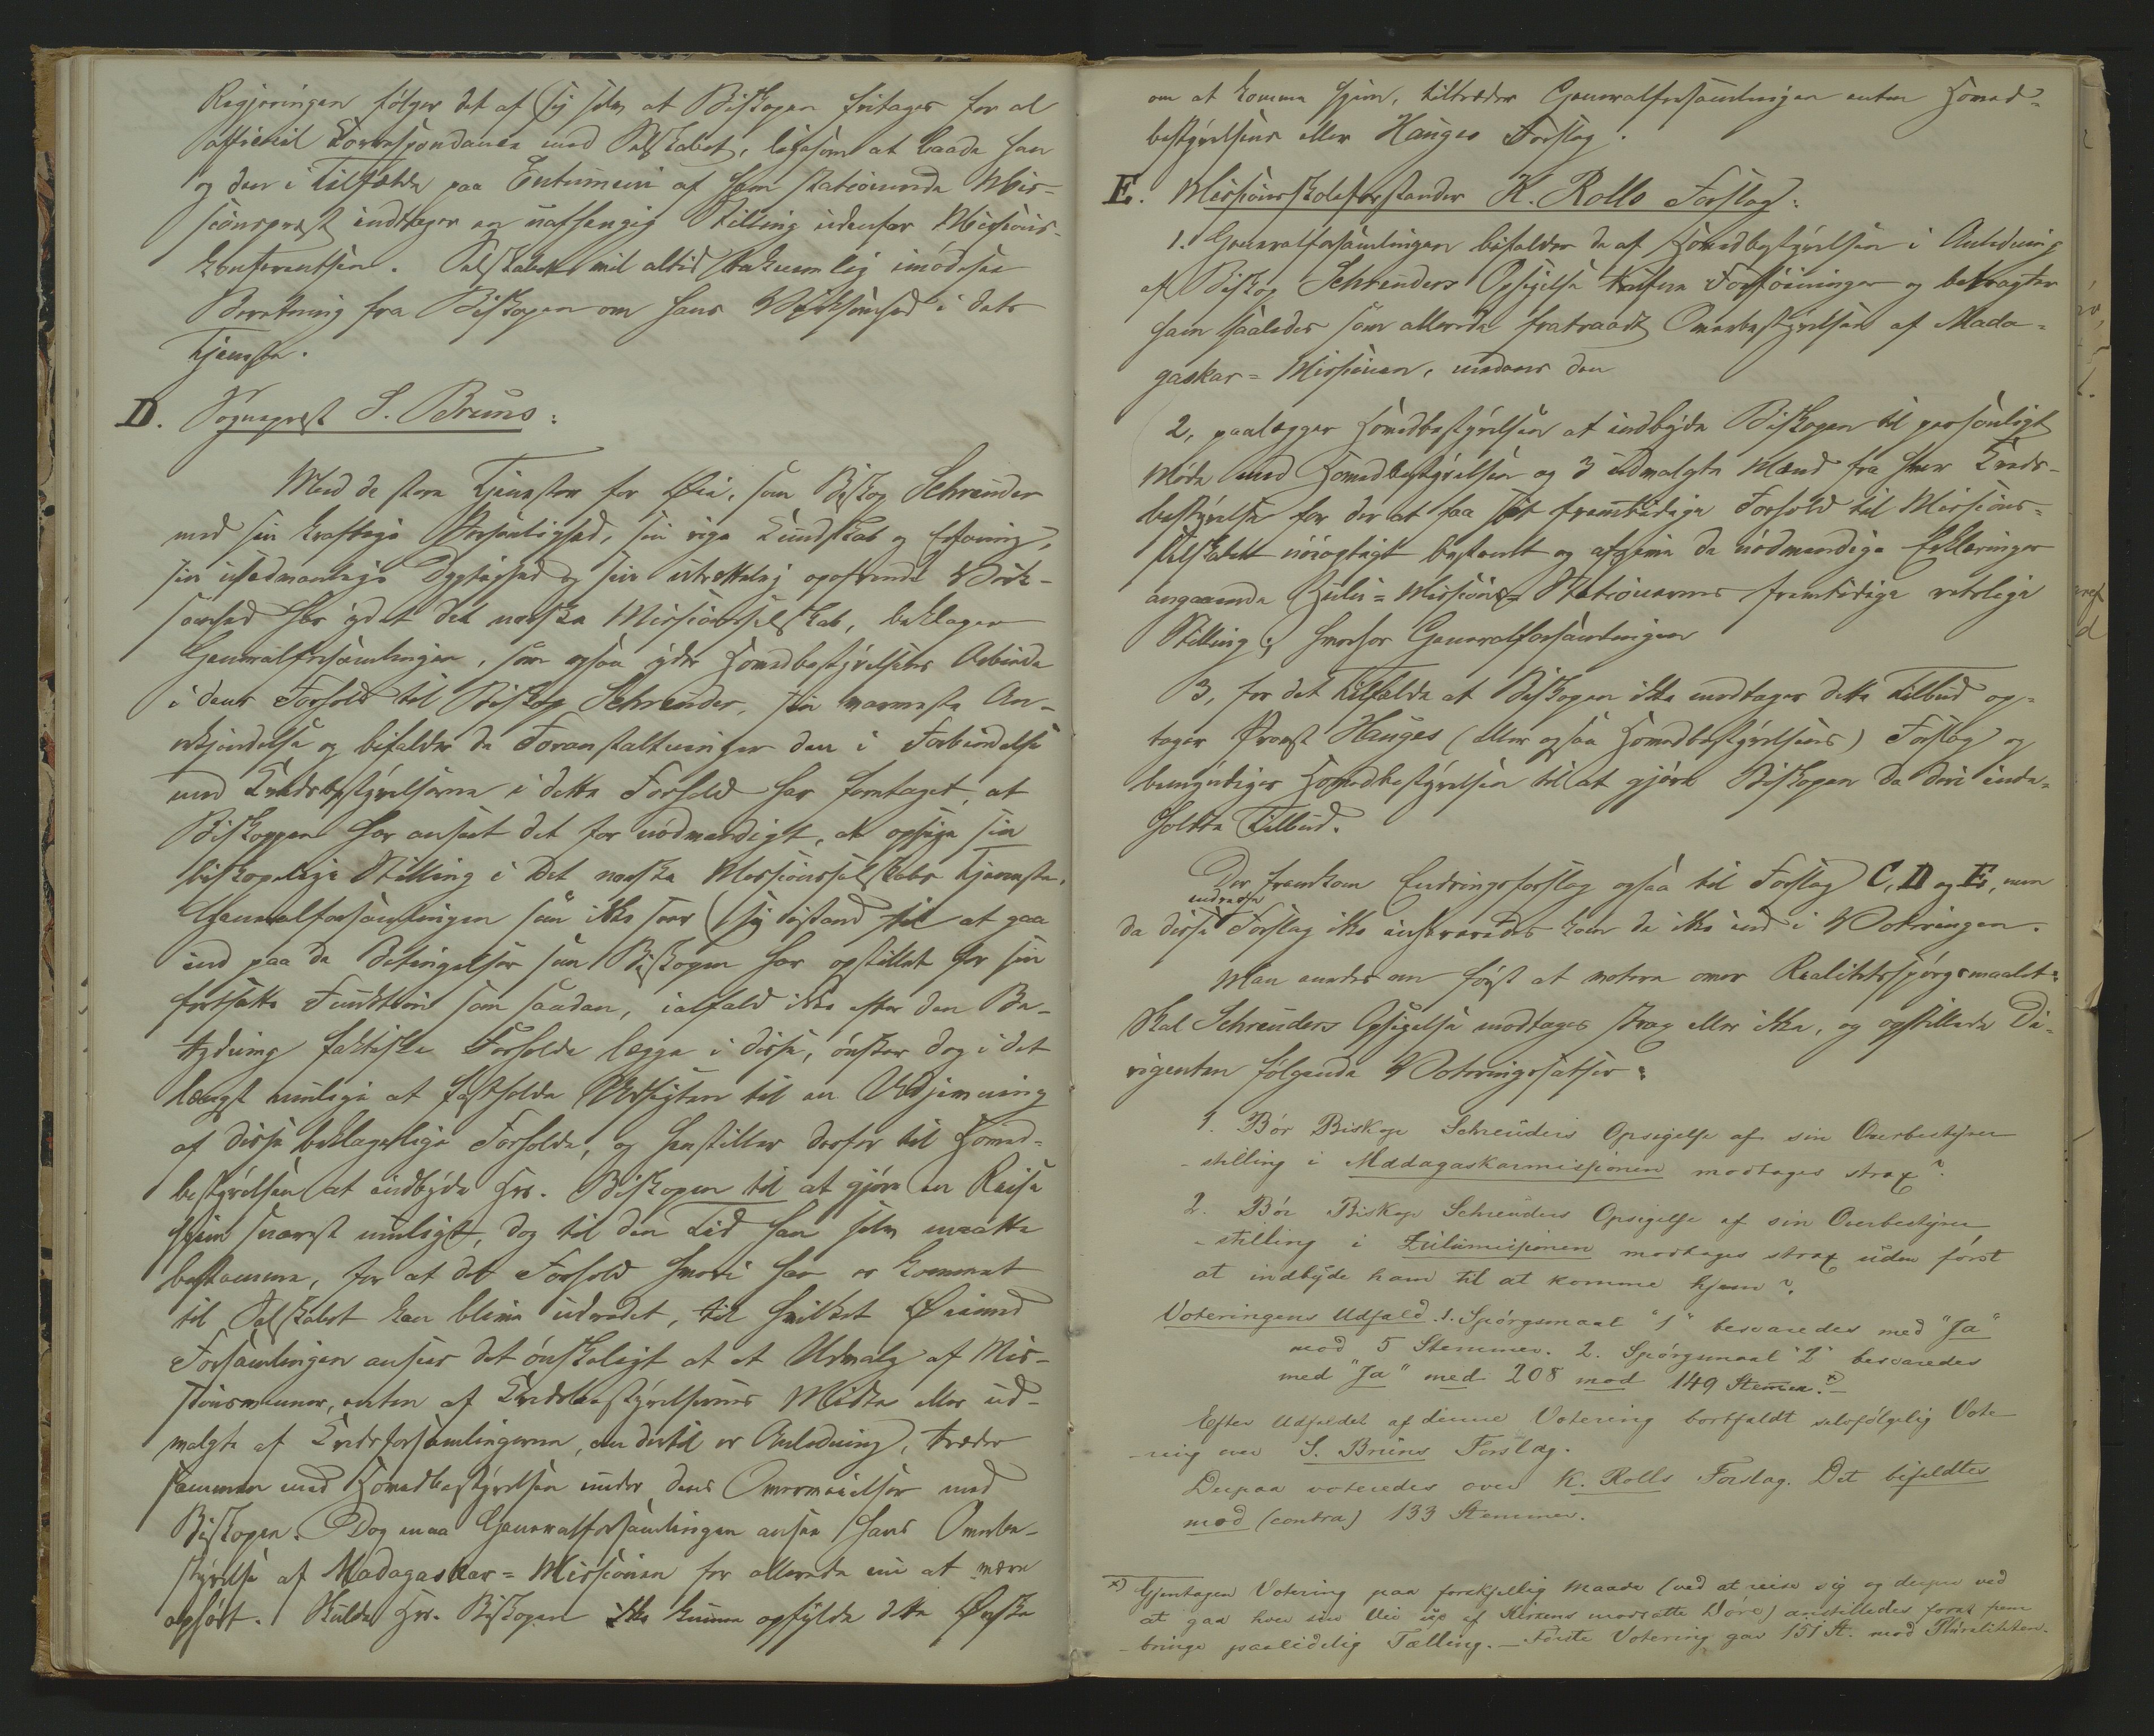 Regjeringen følger det af sig selv at Biskopen fritages for al
officiel Korrespondance med Selskabet, ligesom at baade han
og den i Tilfælde paa Entumeni af ham stationerede Mis-
sionsprest indtager en uafhængig Stilling udenfor Missions-
konferentsen. Selskabet vil altid taknemlig imødese
Beretning fra Biskopen om hans Virksomhed i dets
Tjeneste.
D. Sogneprest S. Bruns:
Med de store Tjenester for Øie, som Biskop Schreuder
med sin kraftige Personlighed, sin rige Kundskab og Erfaring,
sin usedvanlige Dygtighed og sin utrættelig opofrende Virk-
somhed har ydet det norske Missionsselskab, beklager
Generalforsamlingen, som ogsaa yder Hovedbestyrelsens Arbeide
i dens Forhold til Biskop Schreuder, sin varmeste An-
erkjendelse og bifalder de Foranstaltninger den i Forbindelse
med Kredsbestyrelserne i dette Forhold har foretaget, at
Biskoppen har anseet det for nødvendigt, at opsige sin
biskopelige Stilling i Det norske Missionsselskabs Tjeneste.
Generalforsamlingen som ikke seer sig istand til at gaa
ind paa de Betingelser som Biskopen har opstillet for sin
fortsatte Funktion som saadan, ialfald ikke efter den Be-
tydning faktiske Forholde lægge i disse, ønsker dog i det
længst mulige at fastholde Udsigten til en Udjevning
af disse beklagelige Forholde, og henstiller derfor til Hoved-
bestyrelsen at indbyde Hrr. Biskopen til at gjøre en Reise
hjem snarest muligt, dog til den Tid han selv maatte
bestemme, for at det Forhold hvori han er kommet
til Selskabet kan blive udredet, til hvilket Øiemed
Forsamlingen anser det ønskeligt at et Udvalg af Mis-
sionsvenner, enten af Kredsbestyrelsernes Midte eller ud-
valgte af Kredsforsamlingerne, om dertil er Anledning, træder
sammen med Hovedbestyrelsen under dens Overveielser med
Biskopen. Dog maa Generalforsamlingen ansee hans Overbe-
styrelse af Madagaskar-Missionen for allerede nu at være
ophørt. Skulde Hrr. Biskopen ikke kunne opfylde dette Ønske
om at komme hjem, tiltræder Generalforsamlingen enten Hoved-
bestyrelsens eller Hauges Forslag.
E. Missionsskoleforstander K. Rolls Forslag:
1. Generalforsamlingen bifalder de af Hovedbestyrelsen i Anledning
af Biskop Schreuders Opsigelse trufne Forføininger og betragter
ham saaledes som allerede fratraadt Overbestyrelsen af Mada-
gaskar-Missionen, medens den
2, paalægger Hovedbestyrelsen at indbyde Biskopen til personligt
Møde med Hovedbestyrelsen og 3 udvalgte Mænd fra hver Kreds-
bestyrelse for der at faa sit fremtidige Forhold til Missions-
selskabet nøiagtigt bestemt og afgive de nødvendige Erklæringer
angaaende Zulu-Missions-Stationernes fremtidige retslige
Stilling; hvorhos Generalforsamlingen
3, for det Tilfælde at Biskopen ikke modtager dette Tilbud op-
tager Provst Hauges (eller ogsaa Hovedbestyrelsens) Forslag og
bemyndiger Hovedbestyrelsen til at gjøre Biskopen de deri inde-
holdte Tilbud.
Der fremkom Endringsforslag ogsaa til Forslag C, D og E, men
da disse Forslag ikke kom de ikke ind i Voteringen.
Man enedes om først at votere over Realitetsspørgsmaalet:
Skal Schreuders Opsigelse modtages strax eller ikke, og opstillede Di-
rigenten følgende Voteringssatser:
1. Bør Biskop Schreuders Opsigelse af sin Overbestyrer
-stilling i Maddagaskarmissionen modtages strax?
2. Bør Biskop Schreuders Opsigelse af sin Overbestyrer
-stilling i Zulumissionen modtages strax uden først
at indbyde ham til at komme hjem?
Voteringens Udfald. 1. Spørgsmaal "1" besvaredes med "Ja"
mod 5 Stemmer. 2. Spørgsmaal "2" besvaredes
med "Ja" med 208 mod 149 Stemmer. x)
Efter Udfaldet af denne Votering bortfaldt selvfølgelig Vote
-ring over S. Bruns Forslag.
Derpaa voteredes over K. Rolls Forslag. Det bifaldtes
mod (contra) 133 Stemmer.
x) Gjentagen Votering paa forskjellig Maade (ved at reise sig og derpaa ved
at gaa hver sin Vei ud af Kirkens modsatte Døre) anstilledes forat frem
-bringe paalidelig Tælling. – Første Votering gav 151 St. mod Pluraliteten.